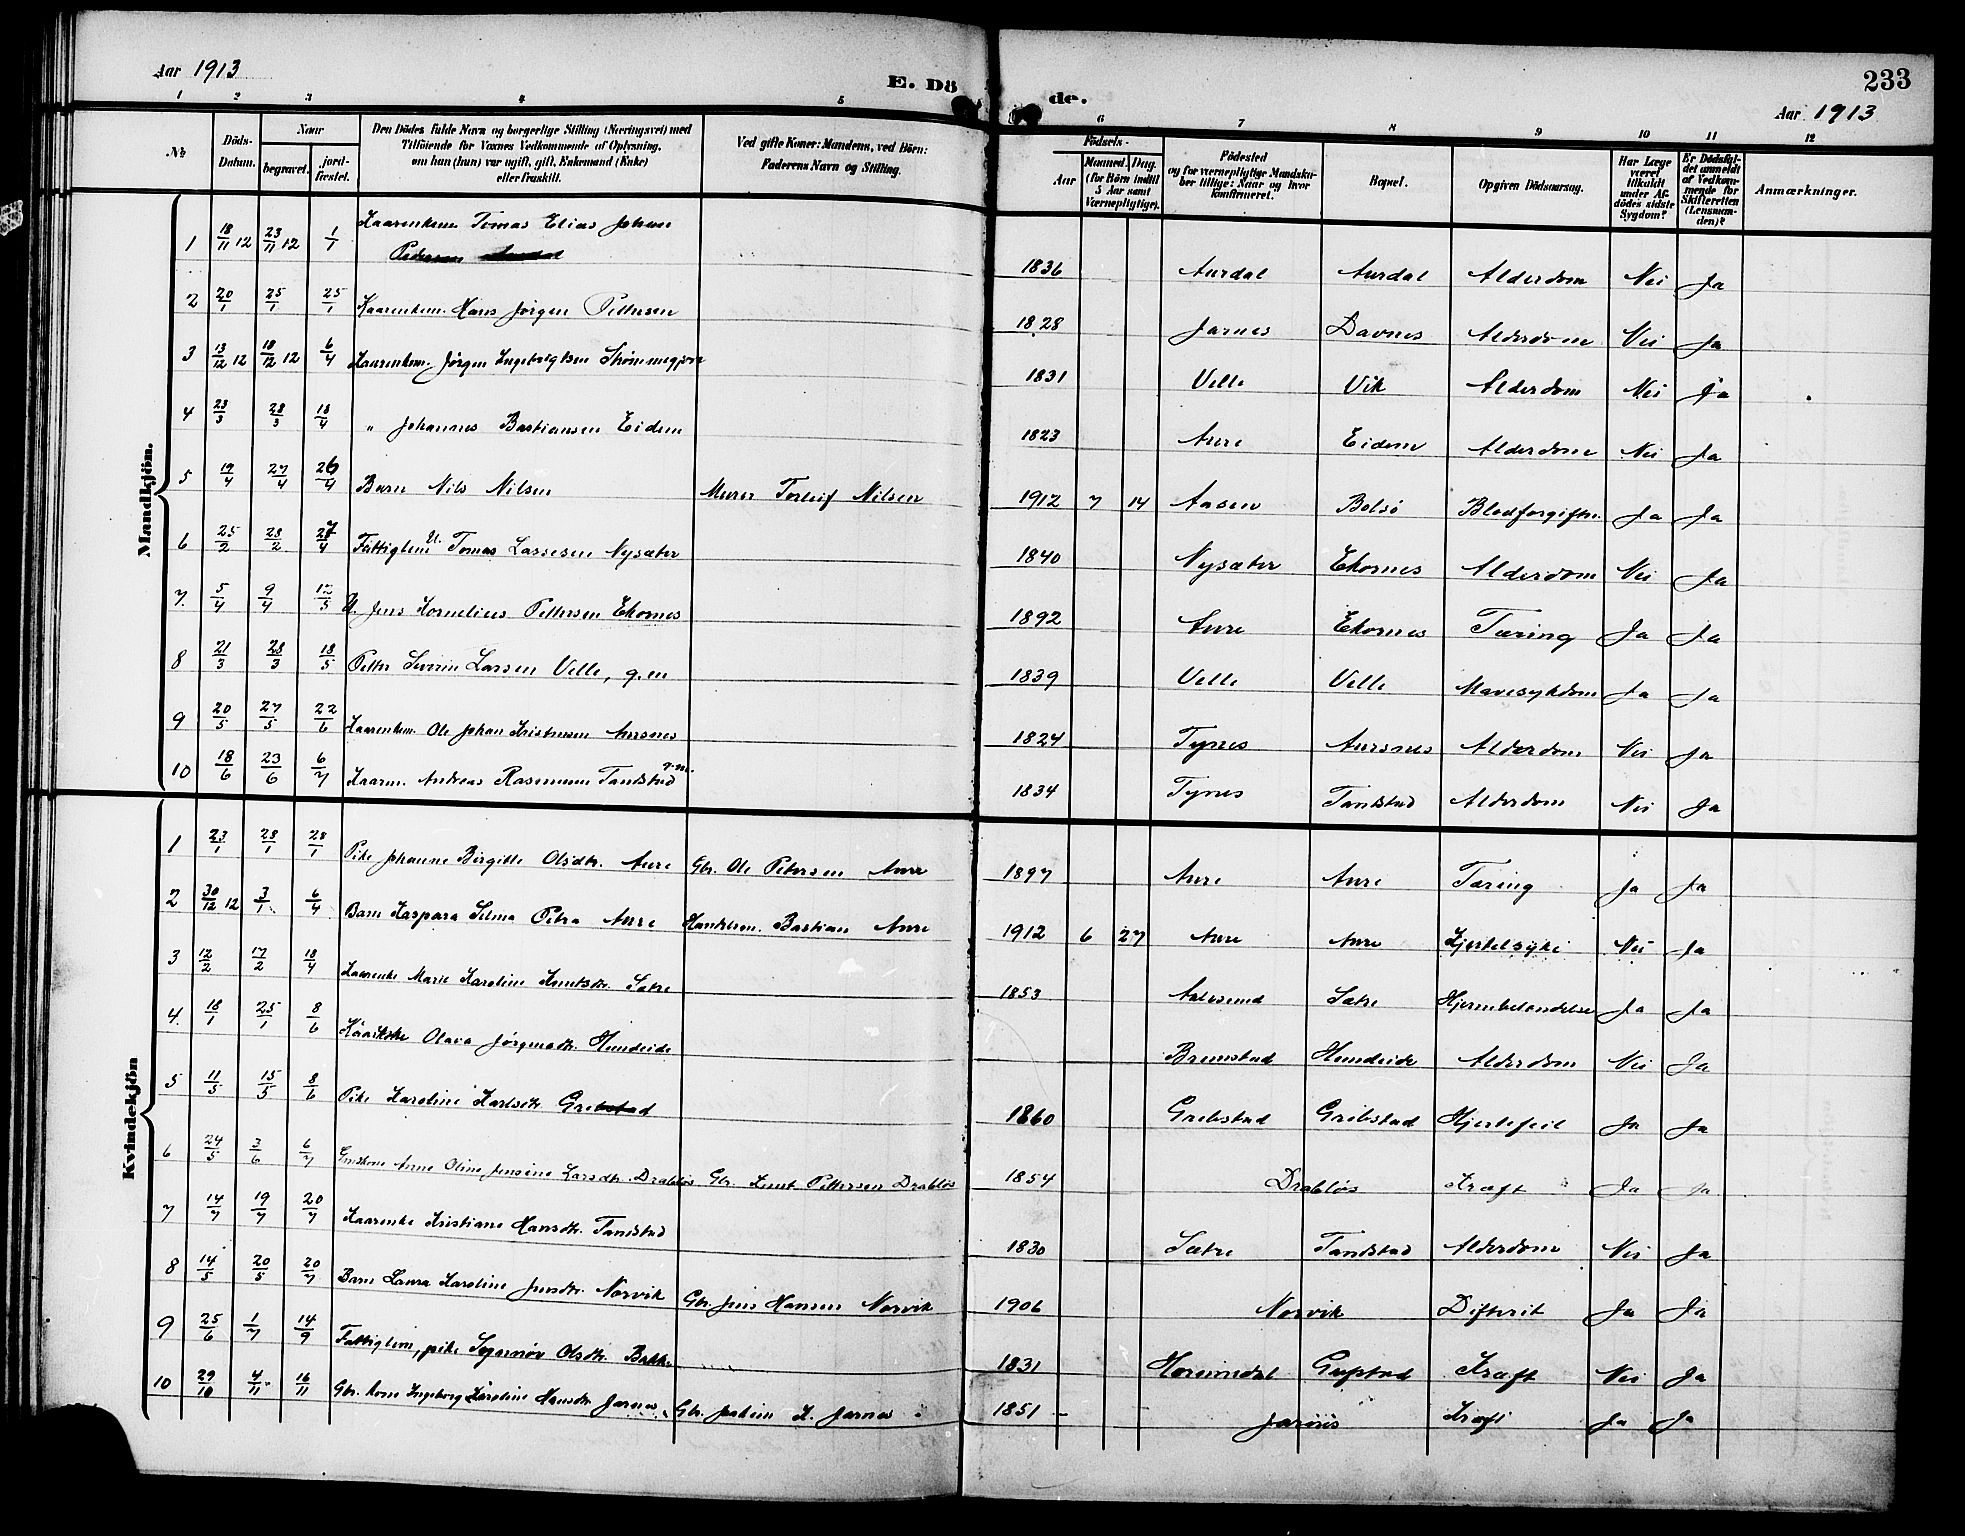 Aar 1913
E. Dö
de.
233
Aar 1913
1 2 3 4 5 6 7 8 9 10 11 12
No
Döds-Datum.
Naar
begravet.
jord-fæstet.
Den Dödes fulde Navn og borgerlige Stilling (Næringsvei) med Tilföiende for Voxnes Vedkommende af Oplysning, om han (hun) var ugift, gift, Enkemand (Enke) eller fraskilt.
Ved gifte Koner: Mandens, ved Börn: Faderens Navn og Stilling.
Födsels-
Aar
Maaned. Dag. (for Börn indtil 5 Aar samt Værnepligtige).
Födested og for værnepligtige Mandskaber tillige: Naar og hvor konfirmeret.
Bopæl.
Opgiven Dödsaarsag.
Har Læge været tilkaldt under Afdödes sidste Sygdom?
Er Dödsfaldet anmeldt af Vedkommende for Skifteretten (Lensmanden)?
Anmærkninger.
Mandkjön.
1 18/11 12 23/11 12 1/1 Kaarenkem. Tomas Elias Johan Pedersen 1836 Aurdal Aurdal Alderdom Nei Ja
2 20/1 25/1 25/1 Kaarenkem. Hans Jørgen Pettersen 1828 Jarnes Davnes Alderdom Nei Ja
3 13/12 12 18/12 12 6/4 Kaarenkem. Jørgen Ingebrigtsen 1831 Velle Vik Alderdom Nei Ja
4 23/3 28/3 18/4 " Johannes Bastiansen Eidem 1823 Aure Eidem Alderdom Nei Ja
5 19/4 27/4 26/4 Barn Nils Nilsen Murer Torleif Nilsen 1912 7 14 Aasen Bolsø Blodforgiftn. Ja Ja
6 25/2 28/2 27/4 Fattiglem U. Tomas Lassesen Nysæter 1840 Nysæter Ekornes Alderdom Nei Ja
7. 5/4 9/4 12/5 U. Jens Kornelius Pettersen Ekornes 1892 Aure Ekornes Tæring Ja Ja
8 21/3 28/3 18/5 Petter Severin Larsen Velle, g.m 1839 Velle Velle Mavesykdom Ja Ja
9 20/5 27/5 22/6 Kaarenkem. Ole Johan Kristensen Aursnes 1824 Tynes Aursnes Alderdom Nei Ja
10 18/6 23/6 6/7 Kaarm. Andreas Rasmussen Tandstad g.m. 1834 Tynes Tandstad Alderdom Nei Ja
Kvindekjön
1 23/1 28/1 28/1 Pike Johanne Birgitte Olsdtr. Aure Gbr. Ole Petersen Aure 1897 Aure Aure Tæring Ja Ja
2 30/12 12 3/1 6/4 Barn Kaspara Selma Petra Aure Handelsm. Bastian Aure 1912 6 27 Aure Aure Kjertelsyke Nei Ja
3 12/2 17/2 18/4 Kaarenke Marie Karoline Knutsdtr. Satre 1853 Aalesund Satre Hjernebetændelse Ja Ja
4. 18/1 25/1 8/6 Olava Jørgensdtr. Hundeide Brunstad Hundeide Alderdom Nei Ja
5 11/5 15/5 8/6 Pike Karoline Karlsdtr. Grebstad 1860 Grebstad Grebstad Hjertefeil Ja Ja
6 24/5 3/6 6/7 Anne Oline Jensine Larsdtr. Drabløs Gbr. Knut Pettersen Drabløs 1854 Drabløs Kræft Ja Ja
7 14/7 19/7 20/7 Kaarenke Kristiane Hansdtr. Tandstad 1830 Satre Tandstad Alderdom Nei Ja
8 14/5 20/5 20/7 Barn Laura Karoline Jensdtr. Norvik Gbr. Jens Hansen Norvik 1906 Norvik Difterit Ja Ja
9 25/6 1/7 14/9 Fattiglem, pike Olsdtr. Bakke 1831 Hornindal Nei Ja Kræft
10 29/10 4/11 16/11 Gbr. kone Ingeborg Karoline Hansdtr Jarnes Gbr. Joakim K. Jarnes 1851 Jarnes Kræft Ja Ja